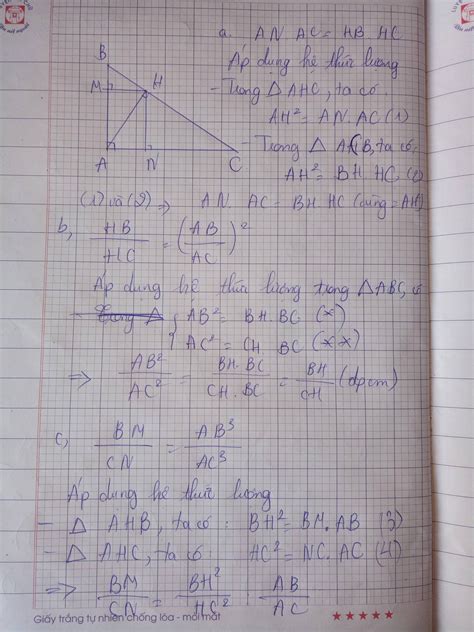 a. AN AC = HB HC
Áp dụng hệ thức lượng
- Trong △ AHC, ta có.
AH² = AN. AC (1)
- Trong △ AHB, ta có,
AH² = BH. HC, (2)
B
M
H
A
N
C
(1) và (2) => AN. AC = BH HC (cùng = AH²)
b, HB/HC = (AB/AC)²
Áp dụng hệ thức lượng trong △ABC, có
- Trong △ { AB² = BH. BC (*)
AC² = CH BC (**)
=> AB²/AC² = BH. BC/CH. BC = BH/CH (đpcm)
c, BM/CN = AB³/AC³
Áp dụng hệ thức lượng
- △ AHB, ta có : BH² = BM. AB (3)
- △ AHC, ta có : HC² = NC. AC (4)
=> BM/CN = BH²/HC² . AB/AC
Giấy trắng tự nhiên chống lóa - mỏi mắt